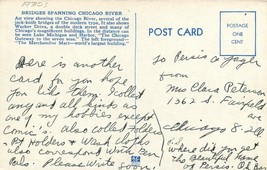 BRIDGES SPANNING CHICAGO RIVER
An view showing the Chicago River, several of the jack-knife bridges of the modern type. It also shows Wacker Drive, a double deck street and many of Chicago's magnificent buildings. In the distance can be seen Lake Michigan and Harbor, "The Chicago Gateway to the seven seas." The left foreground "The Merchandise Mart" world's largest building.
POST CARD
POSTAGE
ONE
CENT
Here is another
card for you hope
you like them. I collect
any and all kinds as
one of my hobbies except
Comic's. also collect folders
Pot Holders & Wash cloths
also correspond with Pen
Pals. Please write soon!
To Persis a
Mrs Clara Peterson
1362 S. Fairfield
ave
Chicago 8 - Ill
where did you get
the beautiful name
of Persis. Oh